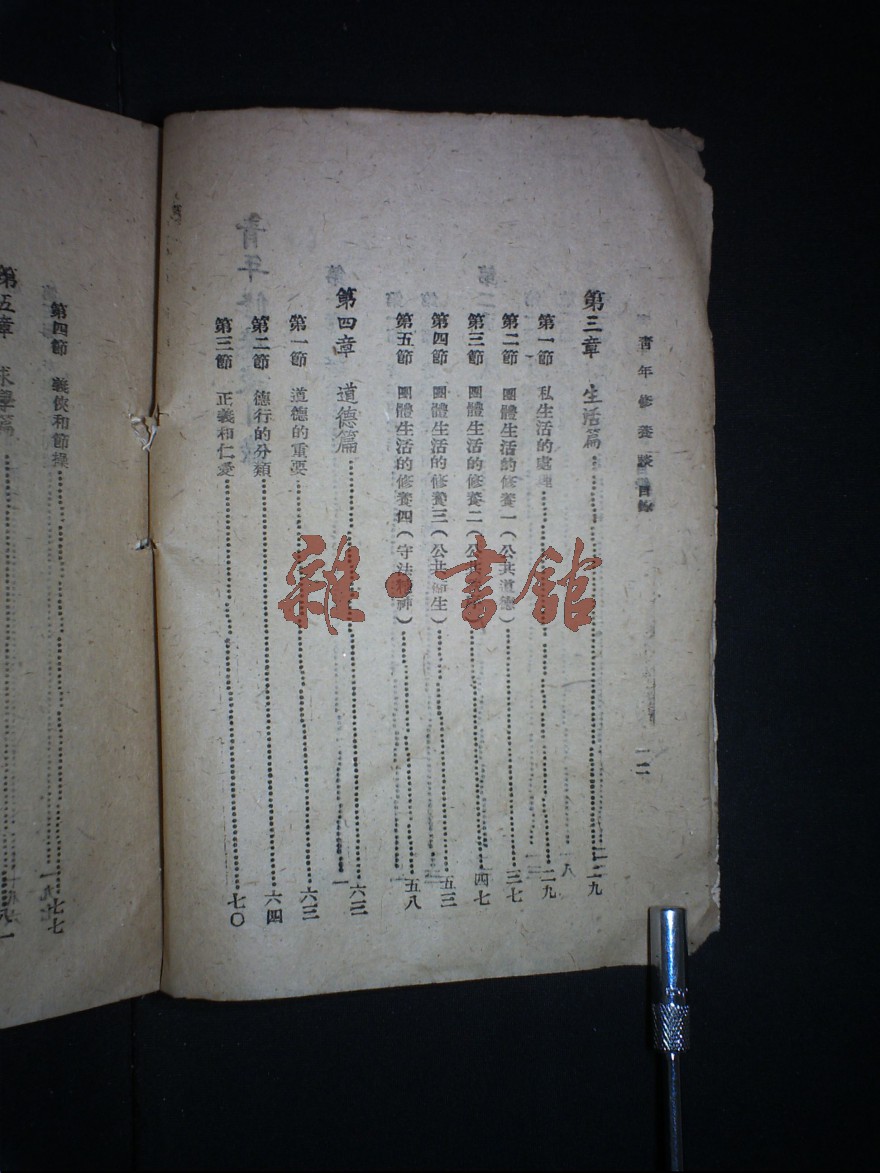 青年修養談目錄
二
第三章 生活篇 二九
第一節 私生活的處理 二九
第二節 團體生活的修養一(公共道德) 三七
第三節 團體生活的修養二(公共 四七
第四節 團體生活的修養三(公共衛生) 五三
第五節 團體生活的修養四(守法精神) 五八
第四章 道德篇 六三
第一節 道德的重要 六三
第二節 德行的分類 六四
第三節 正義和仁愛 七〇
第四節 義俠和節操 七七
第五章 求學篇 八一
雜·書館